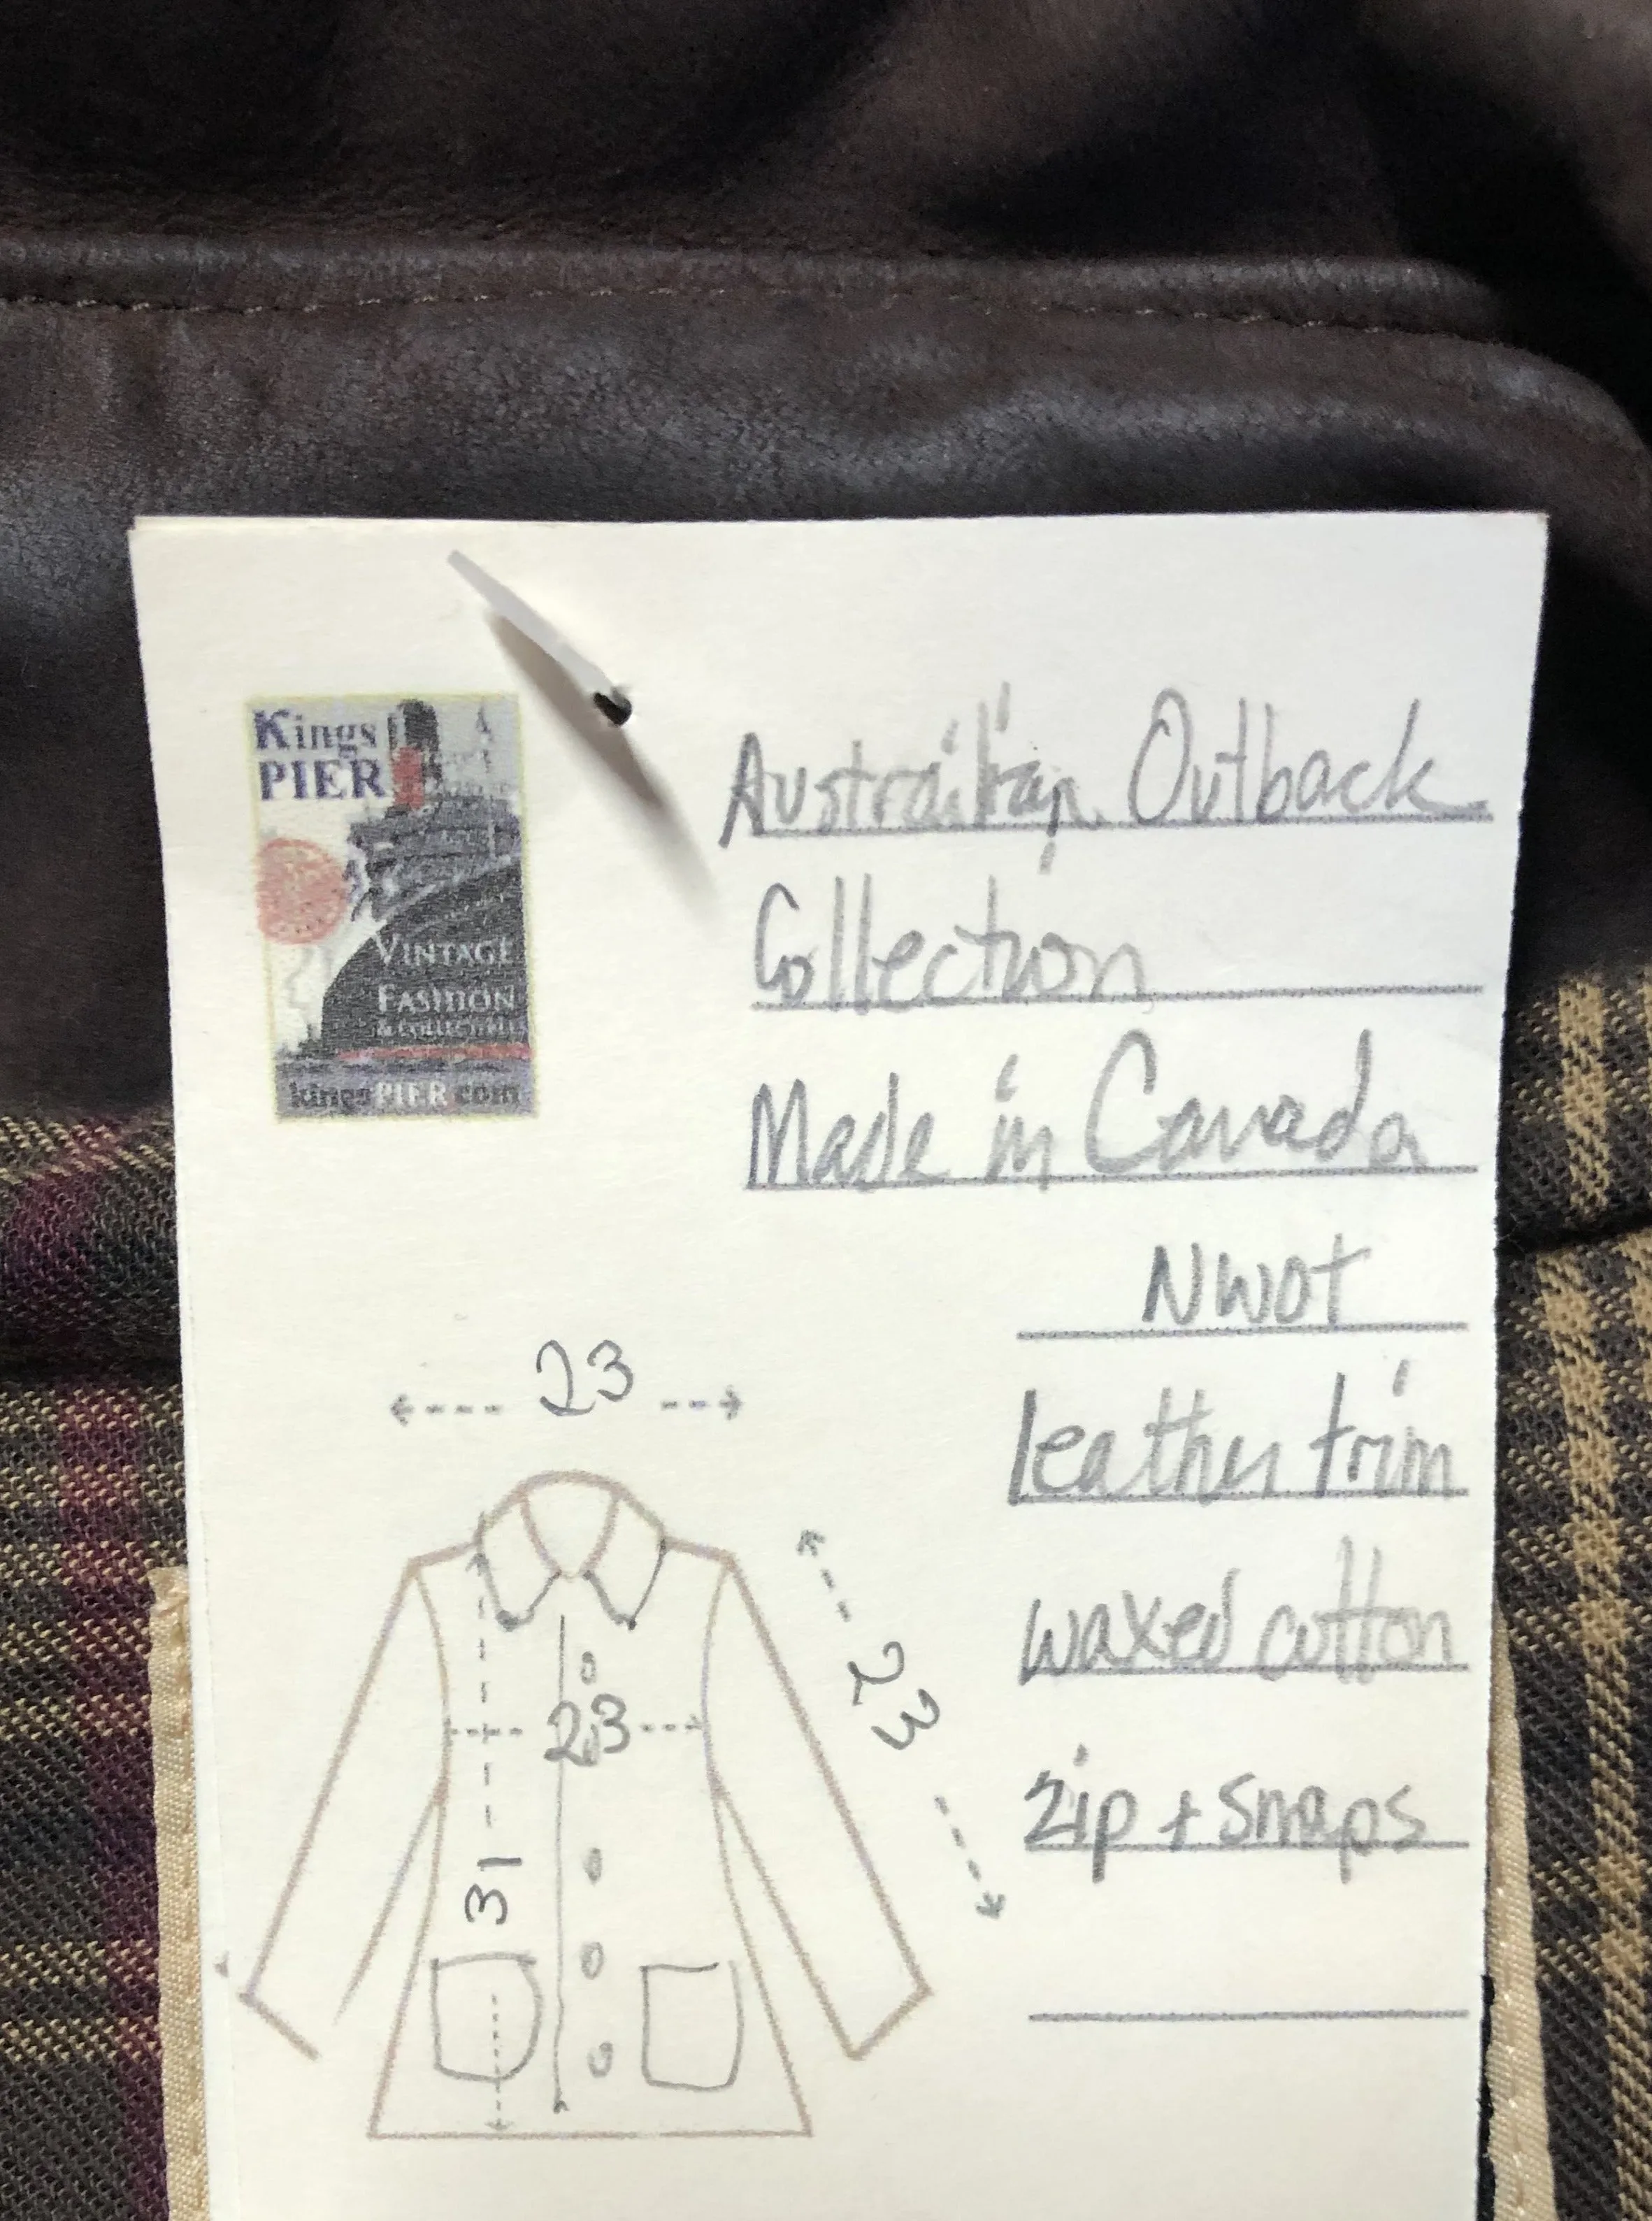 Kings
PIER
VINTAGE
FASHION
& COLLECTIBLES
kingsPIER.com
Austrailian Outback
Collection
Made in Canada
NWOT
leather trim
waxed cotton
zip + snaps
23
23
23
31